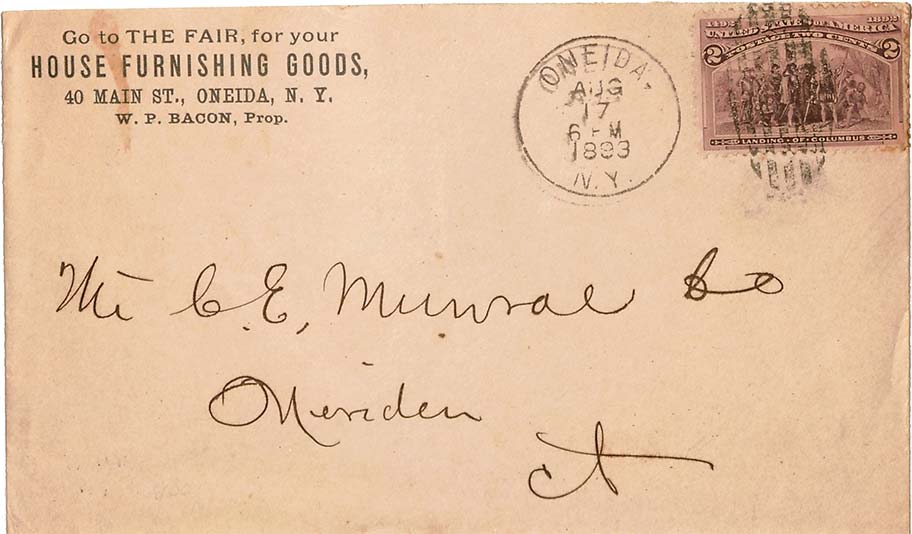 Go to THE FAIR, for your
HOUSE FURNISHING GOODS,
40 MAIN ST., ONEIDA, N. Y.
W. P. BACON, Prop.
ONEIDA,
AUG
17
6 PM
1893
N.Y.
1492 1892
UNITED STATES OF AMERICA
2 POSTAGE TWO CENTS 2
LANDING OF COLUMBUS
The C. E, Munroe Co
Meriden
Ct